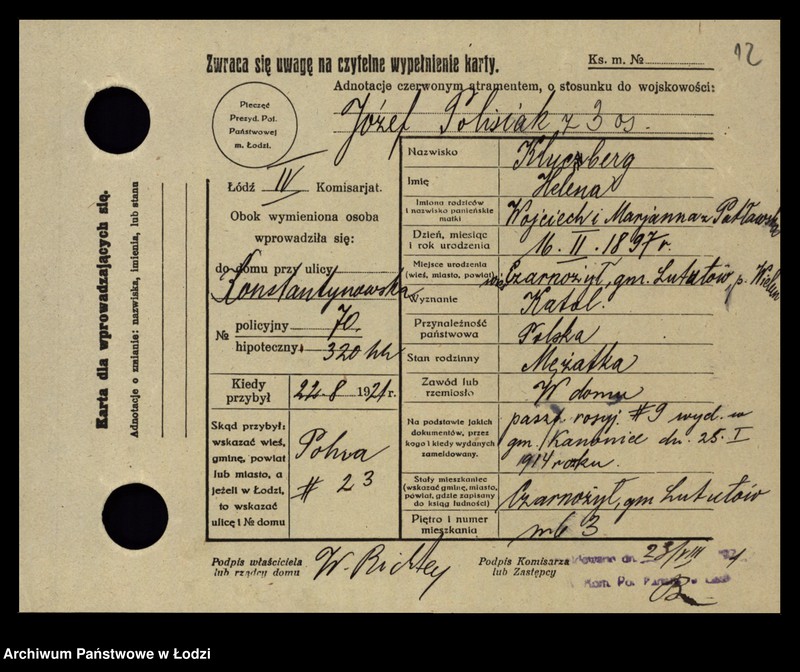 12
Zwraca się uwagę na czytelne wypełnienie karty.
Ks. m. №
Adnotacje czerwonym atramentem, o stosunku do wojskowości:
Józef Polisiak z 3 os.
Pieczęć
Prezyd. Pol.
Państwowej
m. Łodzi.
Łódź IV Komisarjat.
Obok wymieniona osoba
wprowadziła się:
do domu przy ulicy
Konstantynowska
№ policyjny 70
hipoteczny 320 hh
Kiedy
przybył
22-8 1921 r.
Skąd przybył:
wskazać wieś,
gminę, powiat
lub miasto, a
jeżeli w Łodzi,
to wskazać
ulicę i № domu
# 23
Nazwisko
Helena
Imię
Imiona rodziców
i nazwisko panieńskie
matki
Wojciech i Marjanna z
Dzień, miesiąc
i rok urodzenia
16. II. 1897 r.
Miejsce urodzenia
(wieś, miasto, powiat)
wieś Czarnożył, gm. Lututów, p. Wieluń
Wyznanie
Katol.
Przynależność
państwowa
Polska
Stan rodzinny
Mężatka
Zawód lub
rzemiosło
W domu
Na podstawie jakich
dokumentów, przez
kogo i kiedy wydanych
zameldowany.
paszp. rosyj. # 9 wyd. w
gm. dn. 25. I
1914 roku.
Stały mieszkaniec
(wskazać gminę, miasto,
powiat, gdzie zapisany
do ksiąg ludności)
Czarnożył, gm Lututów
Piętro i numer
mieszkania
m 6 3
Podpis właściciela
lub rządcy domu
W. Richter
Podpis Komisarza
lub Zastępcy
dn. 23/VIII 1921
Kom. Po.
Karta dla wprowadzających się.
Adnotacje o zmianie: nazwiska, imienia, lub stanu
Archiwum Państwowe w Łodzi